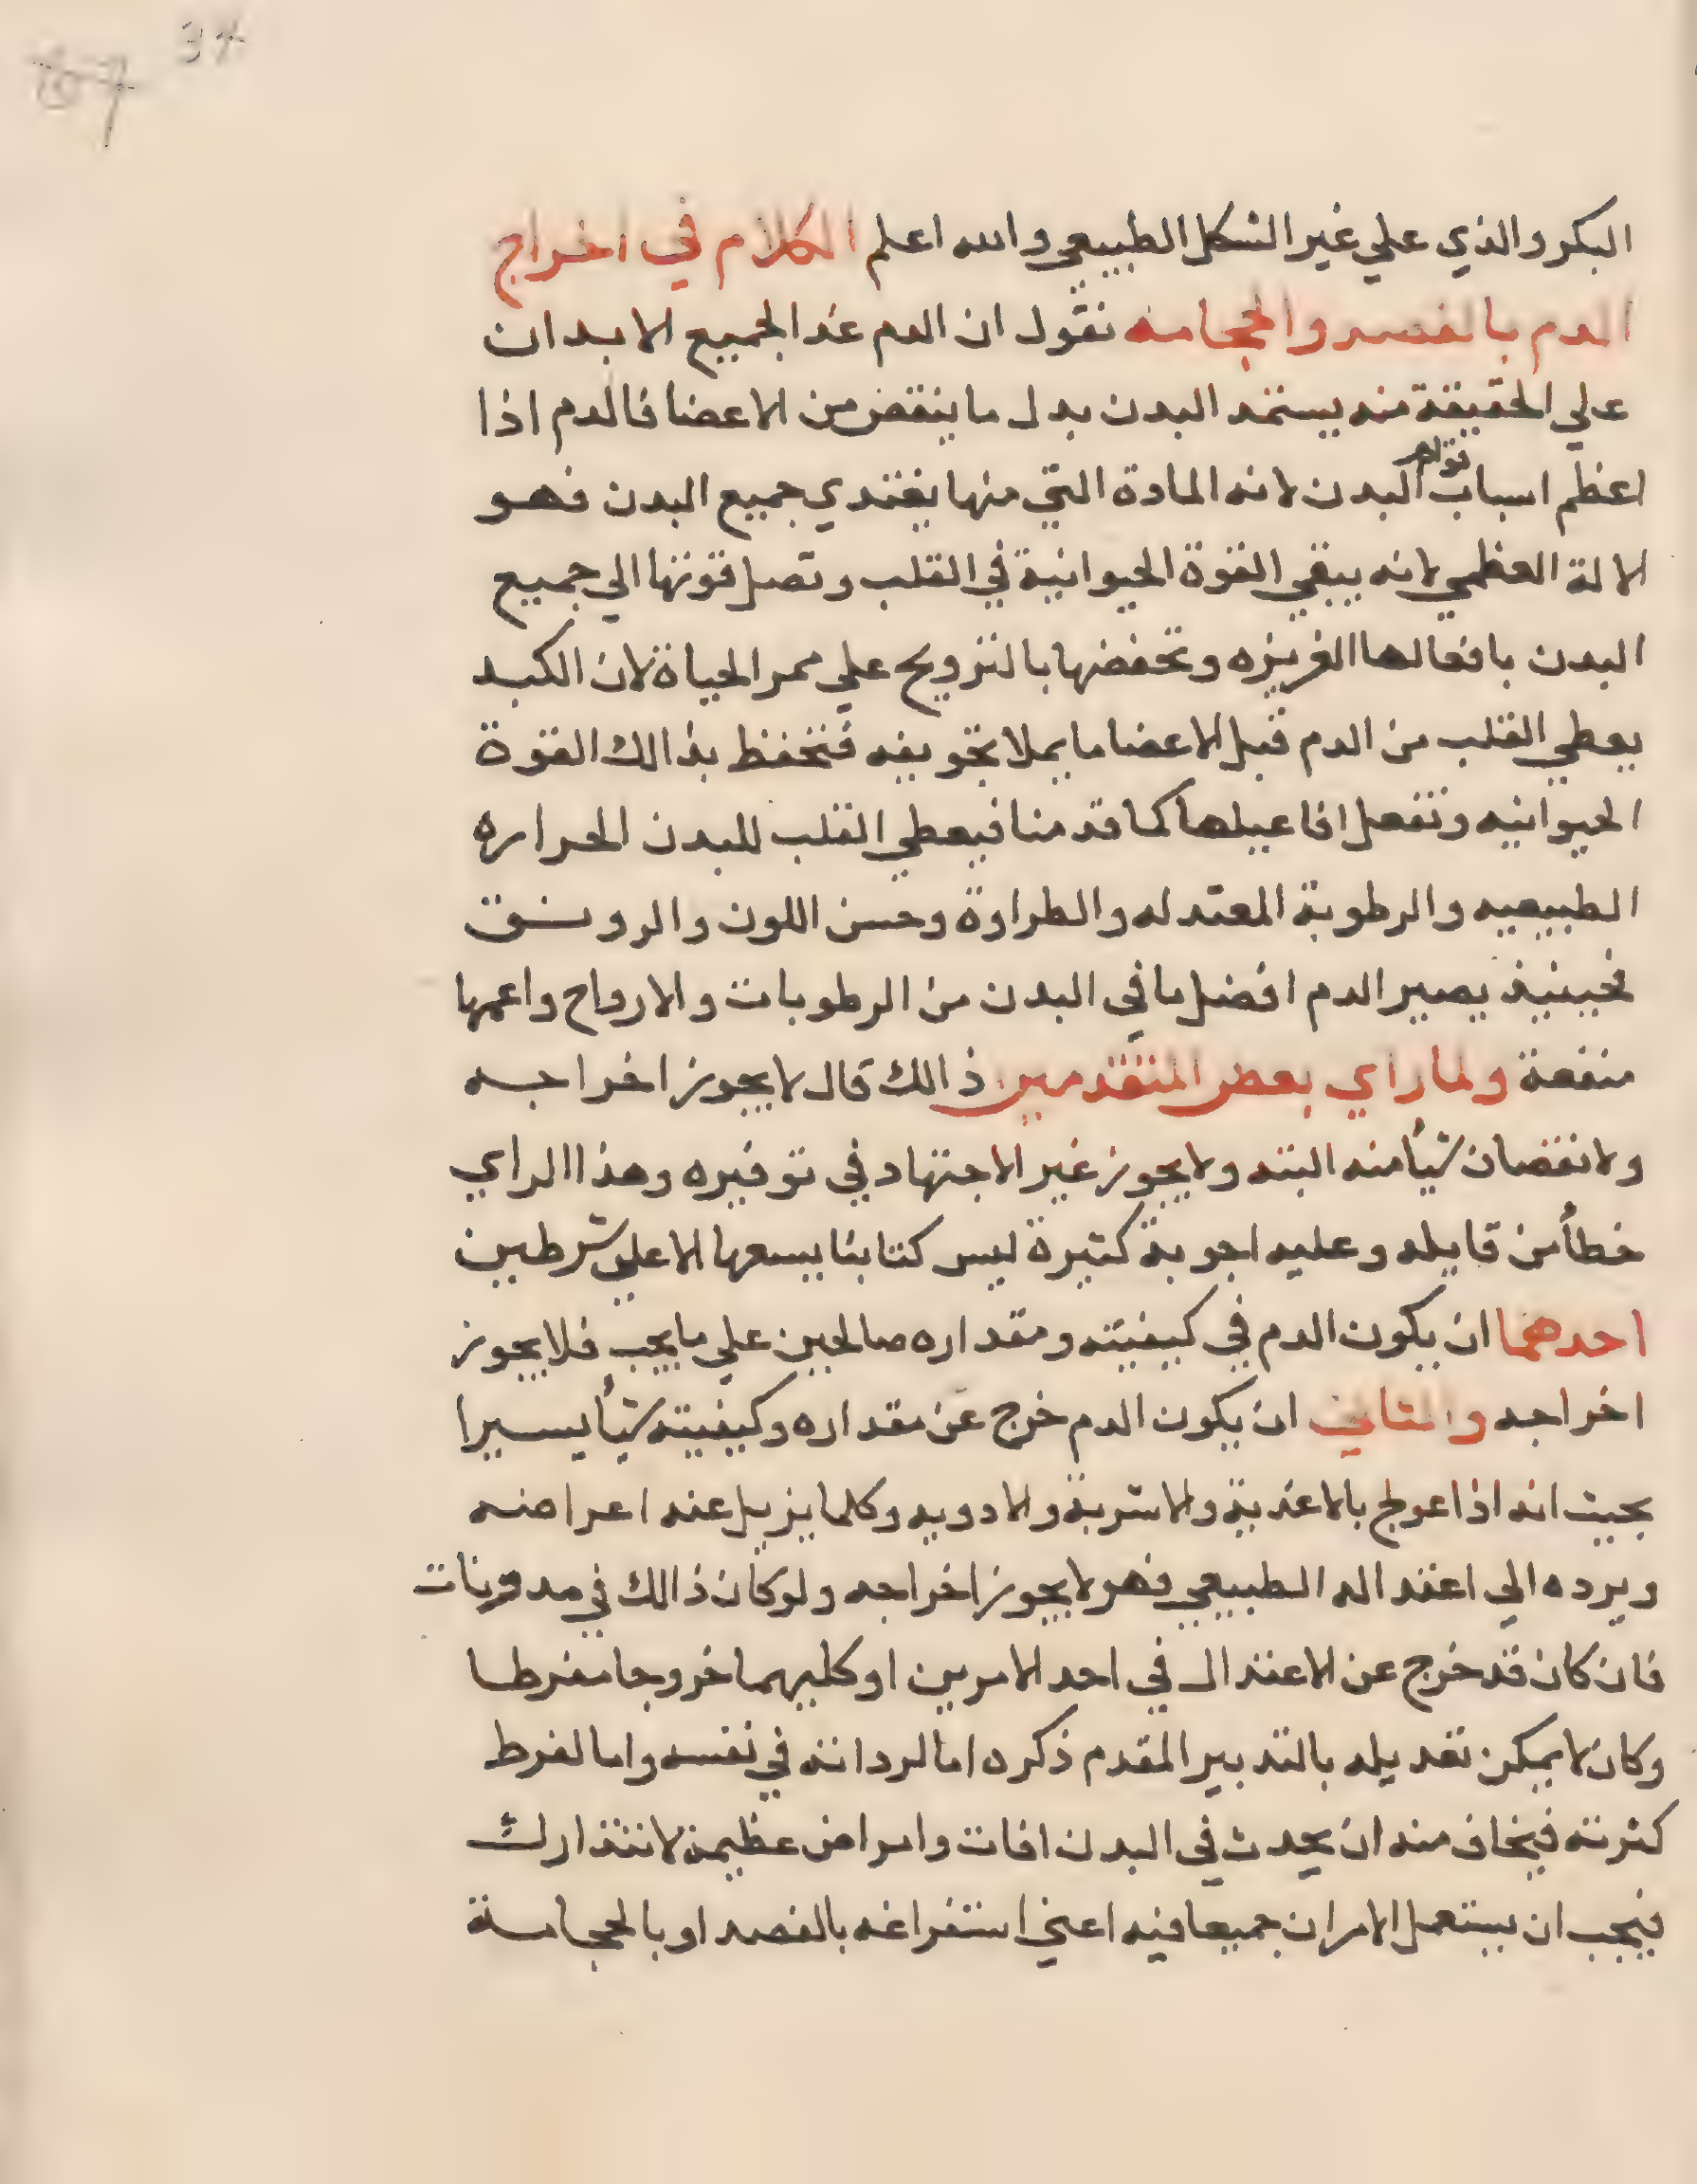 البكر والذي علي غير الشكل الطبيعي والله اعلم الكلام في اخراج
الدم بالفصد والحجامه نقول ان الدم غذا لجميع الابدان
علي الحقيقة منه يستمد البدن بدل ما ينقض من الاعضا فالدم اذا
اعظم اسباب قوام البدن لانه المادة التي منها يغتدي جميع البدن فهو
الالة العظمي لانه يبقي القوة الحيوانية في القلب وتصل قوتها الي جميع
البدن بافعالها الغريزه وتحفضها بالتزويح علي ممر الحياة لان الكبد
يعطي القلب من الدم قبل الاعضا ما يملا تجويفه فتحفظ بذالك القوة
الحيوانيه وتفعل افاعيلها كما قدمنا فيعطي القلب للبدن الحراره
الطبيعيه والرطوبة المعتدله والطراوة وحسن اللون والرونق
فحينيذ يصير الدم افضل ما في البدن من الرطوبات والارواح واعمها
منفعة ولما راي بعض المتقدمين ذالك قال لا يجوز اخراجه
ولا نقصان شيأ منه البته ولا يجوز غير الاجتهاد في توفيره وهذا الراي
خطأ من قايله وعليه اجوبة كثيرة ليس كتابنا يسعها الا علي شرطين
احدهما ان يكون الدم في كيفيته ومقداره صالحين علي ما يجب فلا يجوز
اخراجه والثاني ان يكون الدم خرج عن مقداره وكيفيته شيأ يسيرا
بحيث انه اذا عولج بالاغذية والاشربة والادويه وكلما يزيل عنه اعراضه
ويرده الي اعتداله الطبيعي فهو لا يجوز اخراجه ولو كان ذالك في مدد
فان كان قد خرج عن الاعتدال في احد الامرين او كليهما خروجا مفرطا
وكان لا يمكن تعديله بالتدبير المقدم ذكره اما لرداته في نفسه واما لفرط
كثرته فيخاف منه ان يحدث في البدن افات وامراض عظيمة لا تتدارك
فيجب ان يستعمل الامران جميعا فيه اعني استفراغه بالفصد او بالحجامة